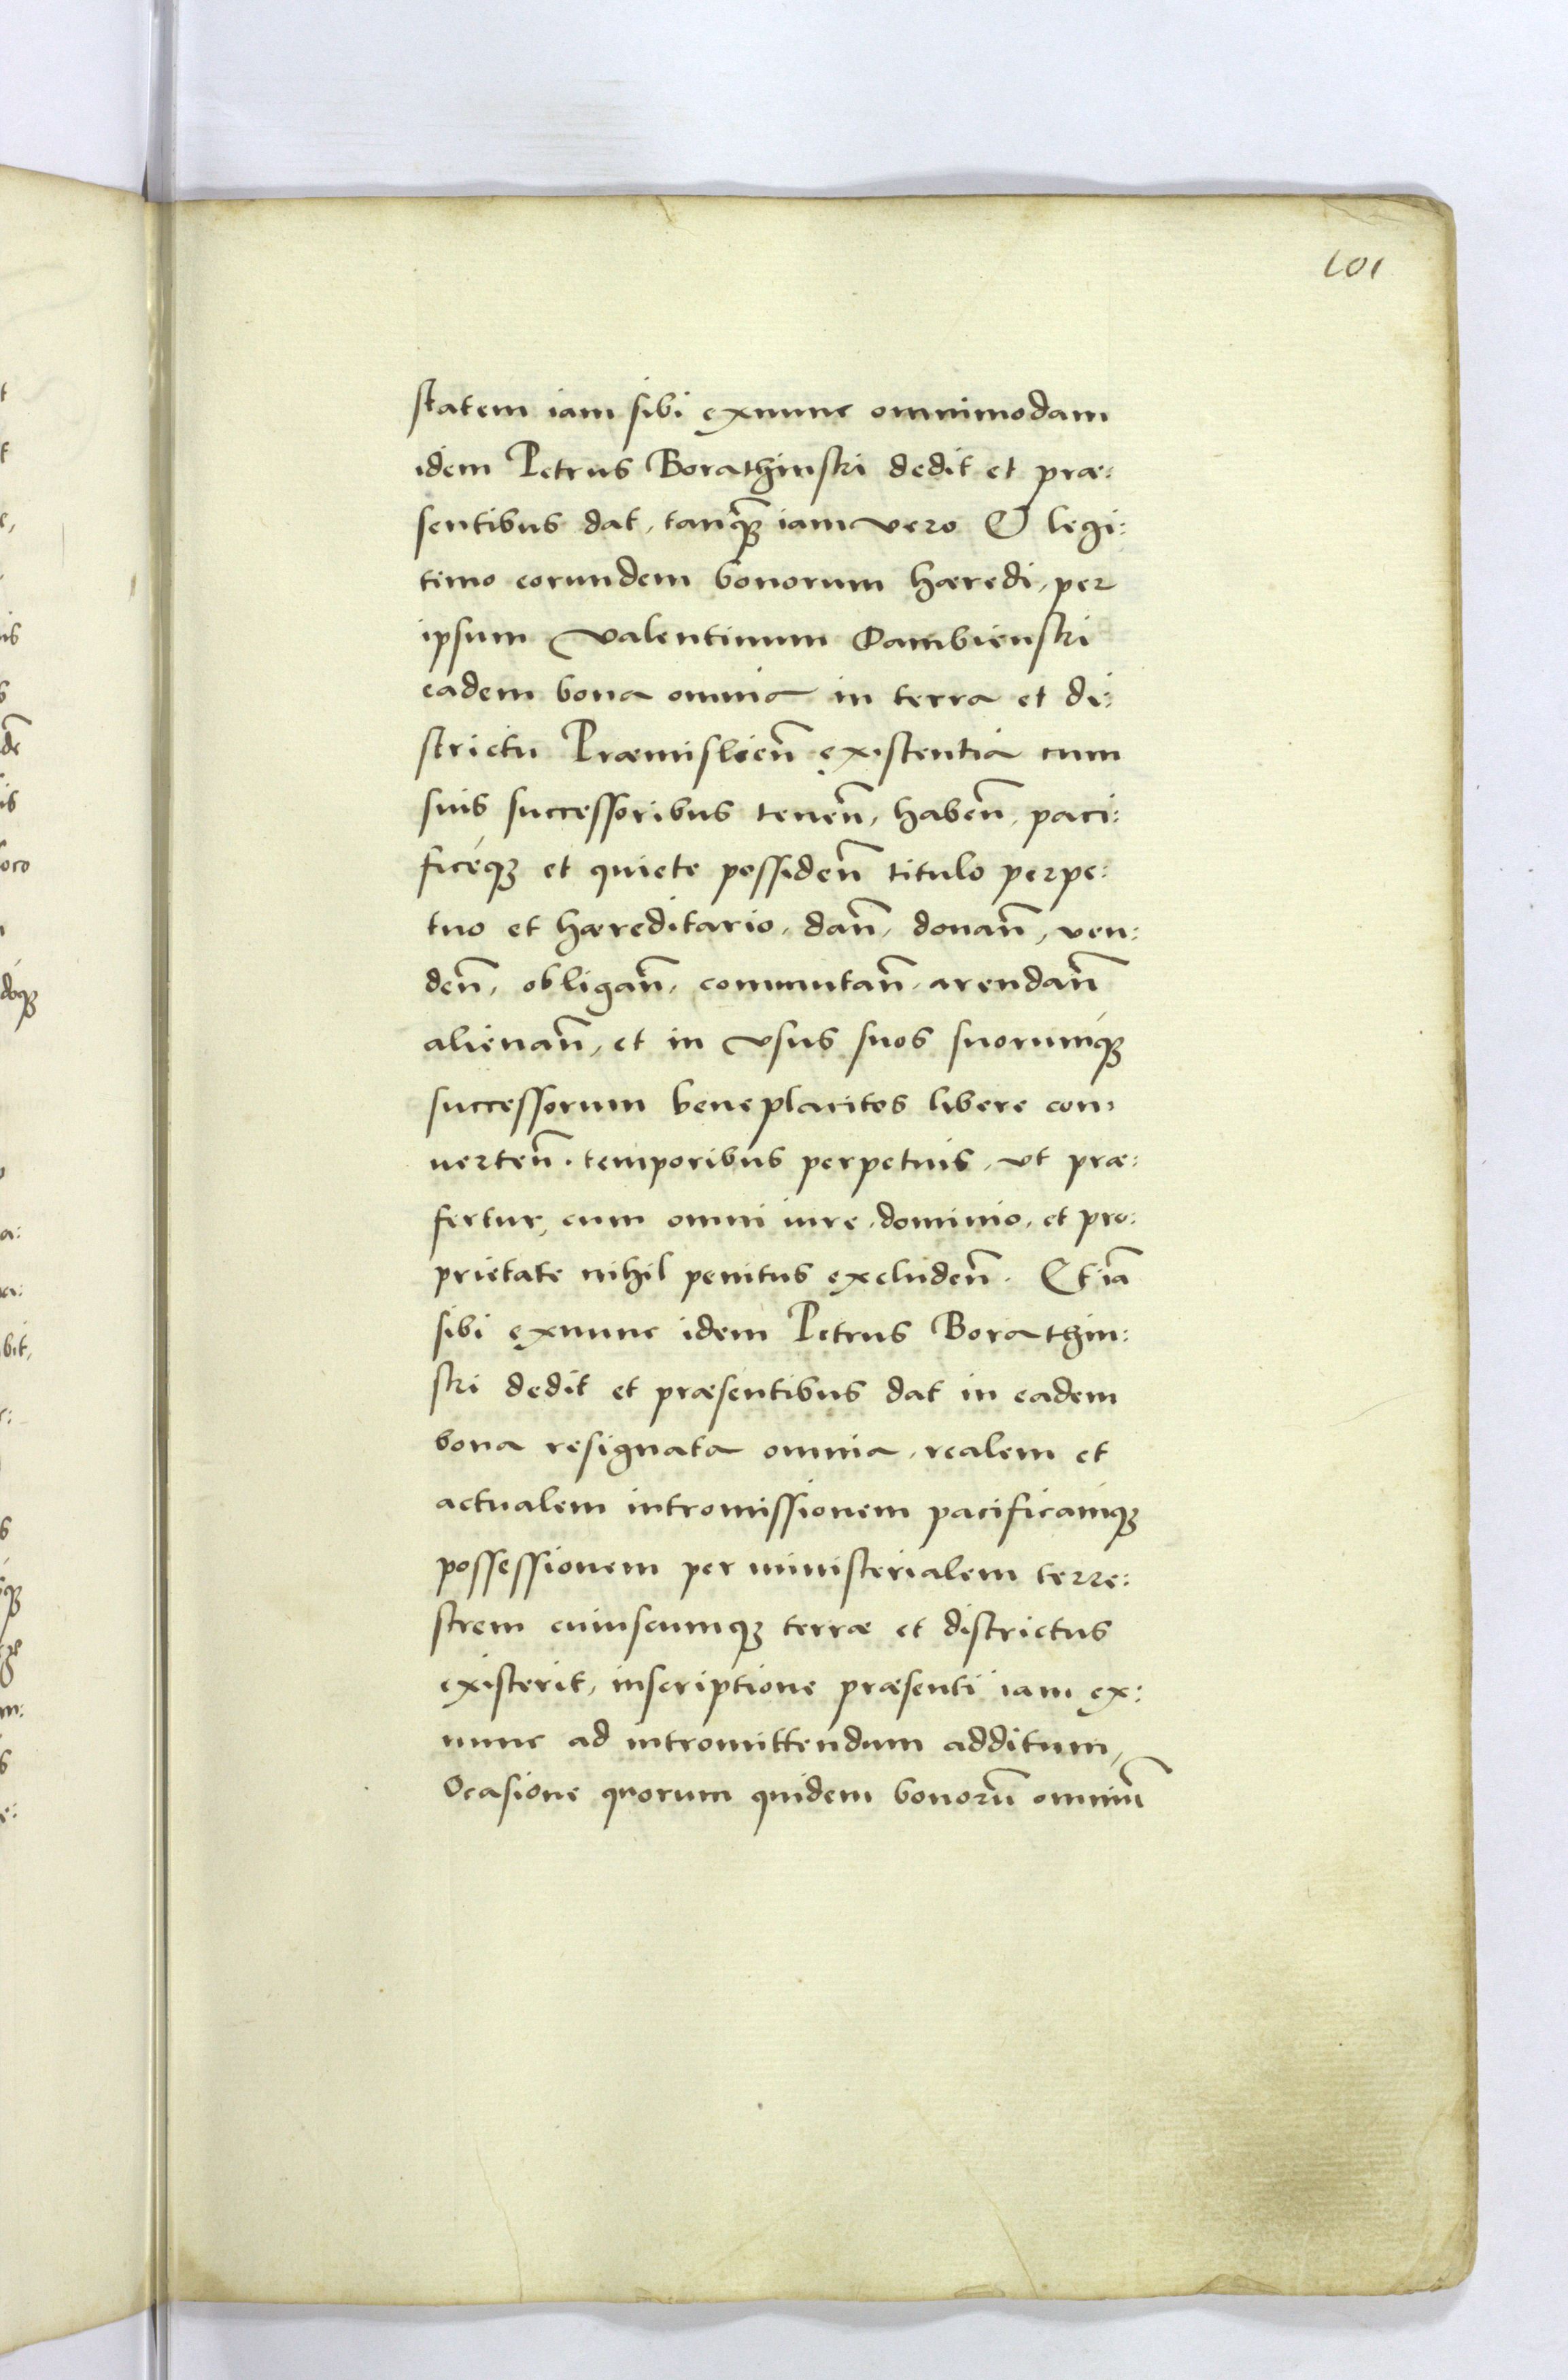 101
statem iam sibi exnunc omnimodam
idem Petrus Borathinski dedit et præ:
sentibus dat, tanq̃ꝫ iam vero & legi:
timo eorundem bonorum hæredi, per
ipsum Valentinum Dambienski
eadem bona omnia in terra et di:
strictu Præmislieñ existentia cum
suis successoribus teneñ, habeñ, paci:
ficéqꝫ et quiete possideñ titulo perpe:
tuo et hæreditario, dañ, donañ, ven:
deñ, obligañ, commutañ, arendañ
alienañ, et in vsus suos suorumqꝫ
successorum beneplacitos libere con:
uerteñ. temporibus perpetuis, vt præ:
fertur, cum omni iure, dominio, et pro:
prietate nihil penitus excludeñ. Et iã
sibi exnunc idem Petrus Borathin:
ski dedit et præsentibus dat in eadem
bona resignata omnia, realem et
actualem intromissionem pacificamqꝫ
possessionem per ministerialem terre:
strem cuiuscumqꝫ terræ et districtus
existerit, inscriptione præsenti iam ex:
nunc ad intromittendum additum,
Ocasione quorum quidem bonorũ omniũ